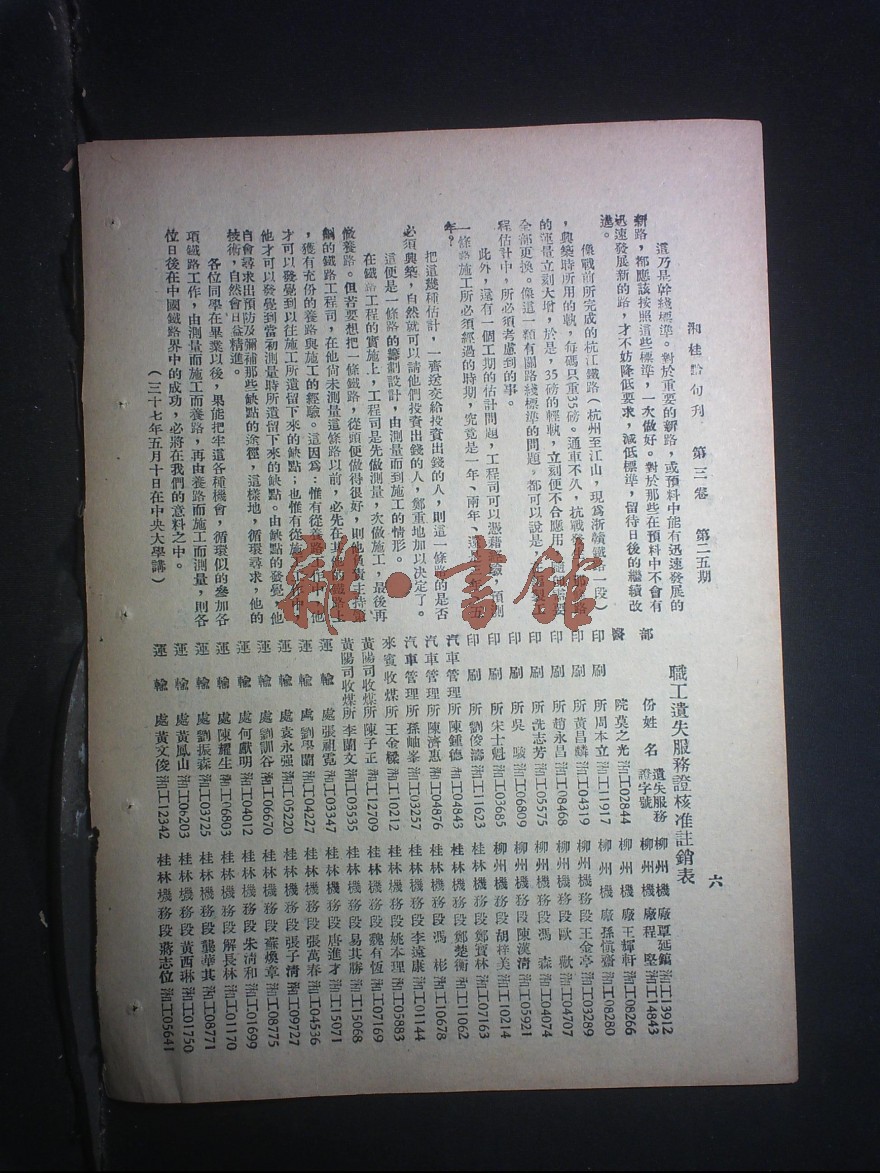 湘桂黔旬刊　第三卷　第二五期
六
這乃是幹綫標準。對於重要的新路，或預料中能有迅速發展的
新路，都應該按照這些標準，一次做好。對於那些在預料中不會有
迅速發展新的路，才不妨降低要求，減低標準，留待日後的繼續改
進。
像戰前所完成的杭江鐵路（杭州至江山，現爲浙贛鐵路一段）
，興築時所用的軌，每碼只重35磅。通車不久，抗戰
的運量立刻大增，於是，35磅的輕軌，立刻便不合應用
全部更換。像這一類有關路綫標準的問題，都可以說是
程估計中，所必須考慮到的事。
此外，還有一個工期的估計問題，工程司可以憑藉經驗，預測
一條路施工所必須經過的時期，究竟是一年、兩年、還是
年？
把這幾種估計，一齊送交給投資出錢的人，則這一條路的是否
必須興築，自然就可以請他們投資出錢的人，鄭重地加以決定了。
這便是一條路的籌劃設計，由測量而到施工的情形。
在鐵路工程的實施上，工程司是先做測量，次做施工，最後再
做養路。但若要想把一條鐵路，從頭便做得很好，則他負責主持
的鐵路工程司，在他尚未測量這條路以前，必先在其他的鐵路上
，獲有充份的養路與施工的經驗。這因爲：惟有從養路工作中，他
才可以發覺到以往施工所遺留下來的缺點；也惟有從施工工作中，
他才可以發覺到當初測量時所遺留下來的缺點。由缺點的發覺，他
自會尋求出預防及彌補那些缺點的途徑，這樣地，循環尋求，他的
技術，自然會日益精進。
各位同學在畢業以後，果能把牢這各種機會，循環似的參加各
項鐵路工作，由測量而施工而養路，再由養路而施工而測量，則各
位日後在中國鐵路界中的成功，必將在我們的意料之中。
（三十七年五月十日在中央大學講）
職工遺失服務證核准註銷表
部份姓名 遺失服務證字號
醫院莫之光湘工02844
印刷所周本立湘工11917
印刷所黃昌麟湘工04319
印刷所趙永昌湘工08468
印刷所沈志芳湘工05575
印刷所吳　湘工06809
印刷所宋士魁湘工03685
印刷所劉俊濤湘工11623
汽車管理所陳鍾德湘工04843
汽車管理所陳濟惠湘工04876
汽車管理所孫岫峯湘工03257
來賓收煤所王金樑湘工10212
黃陽司收煤所陳子正湘工12709
黃陽司收煤所李蘭文湘工03535
運輸處張祖霓湘工03347
運輸處劉學蘭湘工04227
運輸處袁永强湘工05220
運輸處劉訓谷湘工06670
運輸處何獻明湘工04012
運輸處陳耀生湘工06803
運輸處劉振森湘工03725
運輸處黃鳳山湘工06203
運輸處黃文俊湘工12342
柳州機廠覃延鎮湘工13912
柳州機廠程堅湘工14843
柳州機廠王輝軒湘工08266
柳州機廠孫愼齋湘工08280
柳州機務段王金亭湘工03289
柳州機務段歐歡湘工04707
柳州機務段馮森湘工04074
柳州機務段陳漢清湘工05921
柳州機務段胡祥美湘工10214
桂林機務段鄭寶林湘工07163
桂林機務段鄭楚衡湘工11062
桂林機務段馮彬湘工10678
桂林機務段李遠康湘工01144
桂林機務段姚本理湘工05883
桂林機務段魏有恆湘工07169
桂林機務段易其勝湘工15068
桂林機務段唐進才湘工15071
桂林機務段張萬春湘工04536
桂林機務段張子清湘工09727
桂林機務段蘇煥章湘工08775
桂林機務段朱清和湘工01699
桂林機務段解長林湘工01170
桂林機務段龔華其湘工08771
桂林機務段黃西琳湘工01750
桂林機務段蔣志位湘工05641
雜·書館